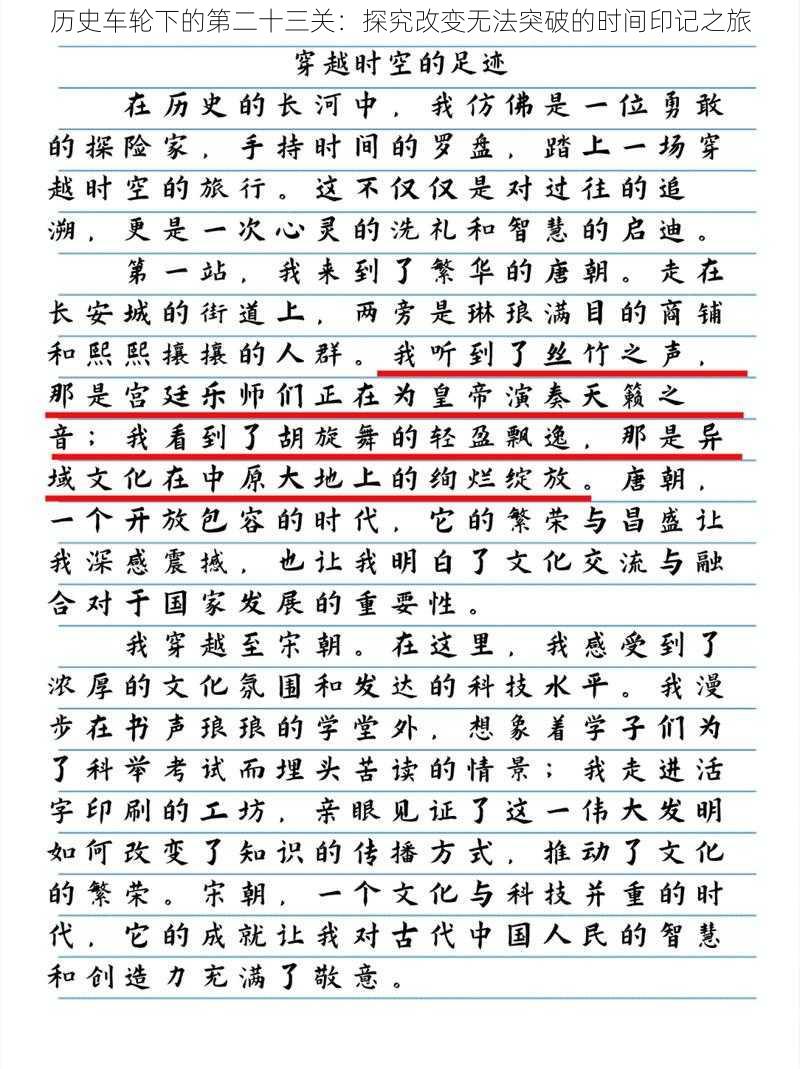 历史车轮下的第二十三关：探究改变无法突破的时间印记之旅
穿越时空的足迹
在历史的长河中，我仿佛是一位勇敢
的探险家，手持时间的罗盘，踏上一场穿
越时空的旅行。这不仅仅是对过往的追
溯，更是一次心灵的洗礼和智慧的启迪。
第一站，我来到了繁华的唐朝。走在
长安城的街道上，两旁是琳琅满目的商铺
和熙熙攘攘的人群。我听到了丝竹之声，
那是宫廷乐师们正在为皇帝演奏天籁之
音；我看到了胡旋舞的轻盈飘逸，那是异
域文化在中原大地上的绚烂绽放。唐朝，
一个开放包容的时代，它的繁荣与昌盛让
我深感震撼，也让我明白了文化交流与融
合对于国家发展的重要性。
我穿越至宋朝。在这里，我感受到了
浓厚的文化氛围和发达的科技水平。我漫
步在书声琅琅的学堂外，想象着学子们为
了科举考试而埋头苦读的情景；我走进活
字印刷的工坊，亲眼见证了这一伟大发明
如何改变了知识的传播方式，推动了文化
的繁荣。宋朝，一个文化与科技并重的时
代，它的成就让我对古代中国人民的智慧
和创造力充满了敬意。